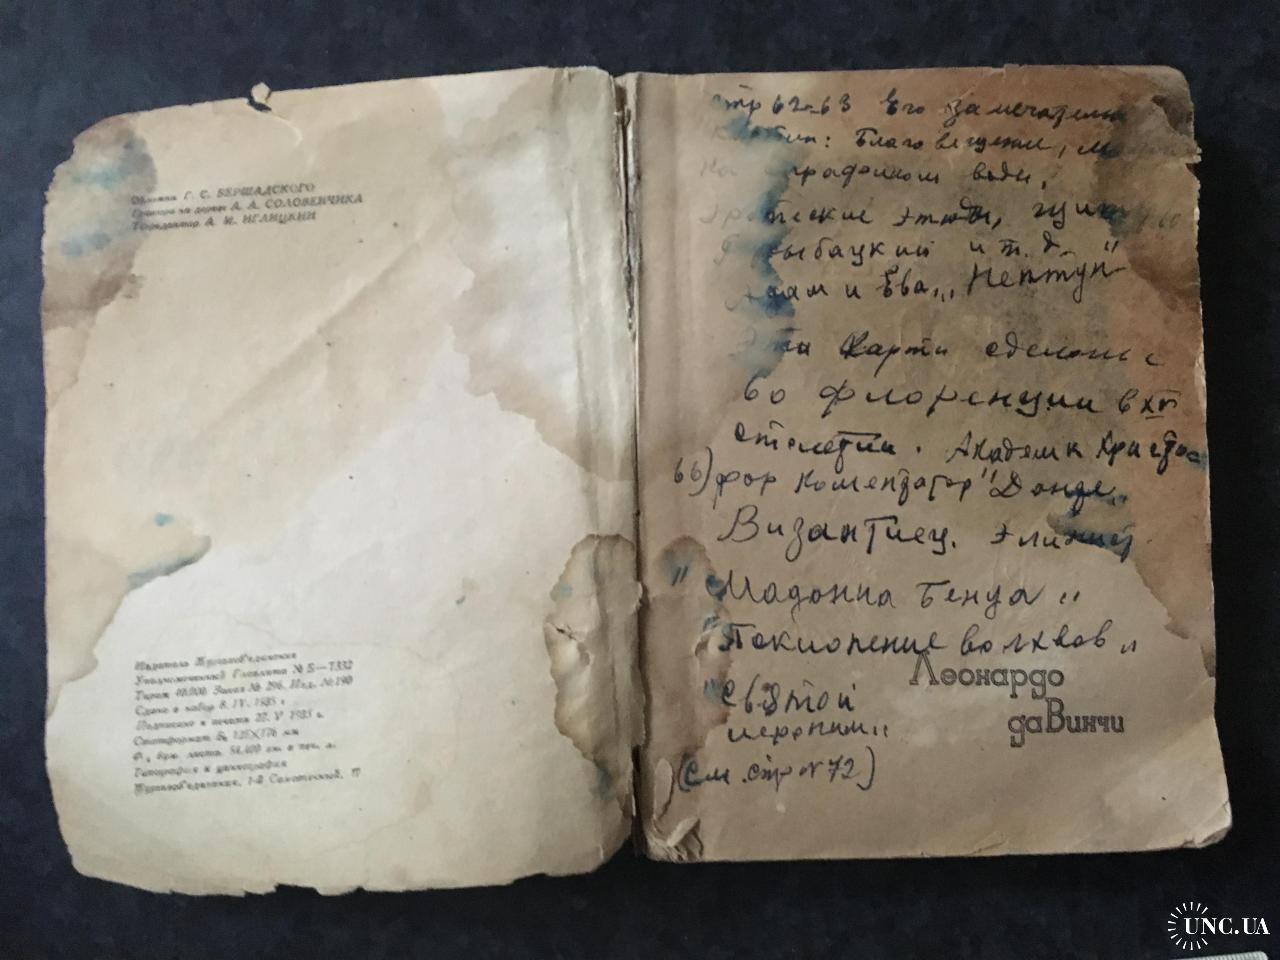 Обложка Г. С. БЕРШАДСКОГО
Гравюра на дереве А. А. СОЛОВЕЙЧИКА
Техредактор А. И. ИГЛИЦКИЙ
Издатель Жургазоб'единение
Уполномоченный Главлита № Б—7332
Тираж 40.000. Заказ № 296. Изд. № 190
Сдано в набор 8. IV. 1935 г.
Подписано к печати 22. V 1935 г.
Статформат Б₆ 125×176 мм
бум. листа 54.400 зн. в печ. л.
Типография и цинкография
Жургазоб'единения, 1-й Самотечный, 17
стр 62-63 Его замечательн
Благовещение,
На графином воды,
этюды,
Рыбацкий и т. д.
Адам и Ева, „Нептун"
Эта Карти сделоны с
во Флоренции в XV
столетии. Академик Кристо
66) фор Коментатор "Данде„
Византиец. элинист
"Мадонна Бенуа„
"Поклонение волхвов„
Леонардо
да Винчи
"Святой
иероним„
(см. стр № 72)
UNC.UA